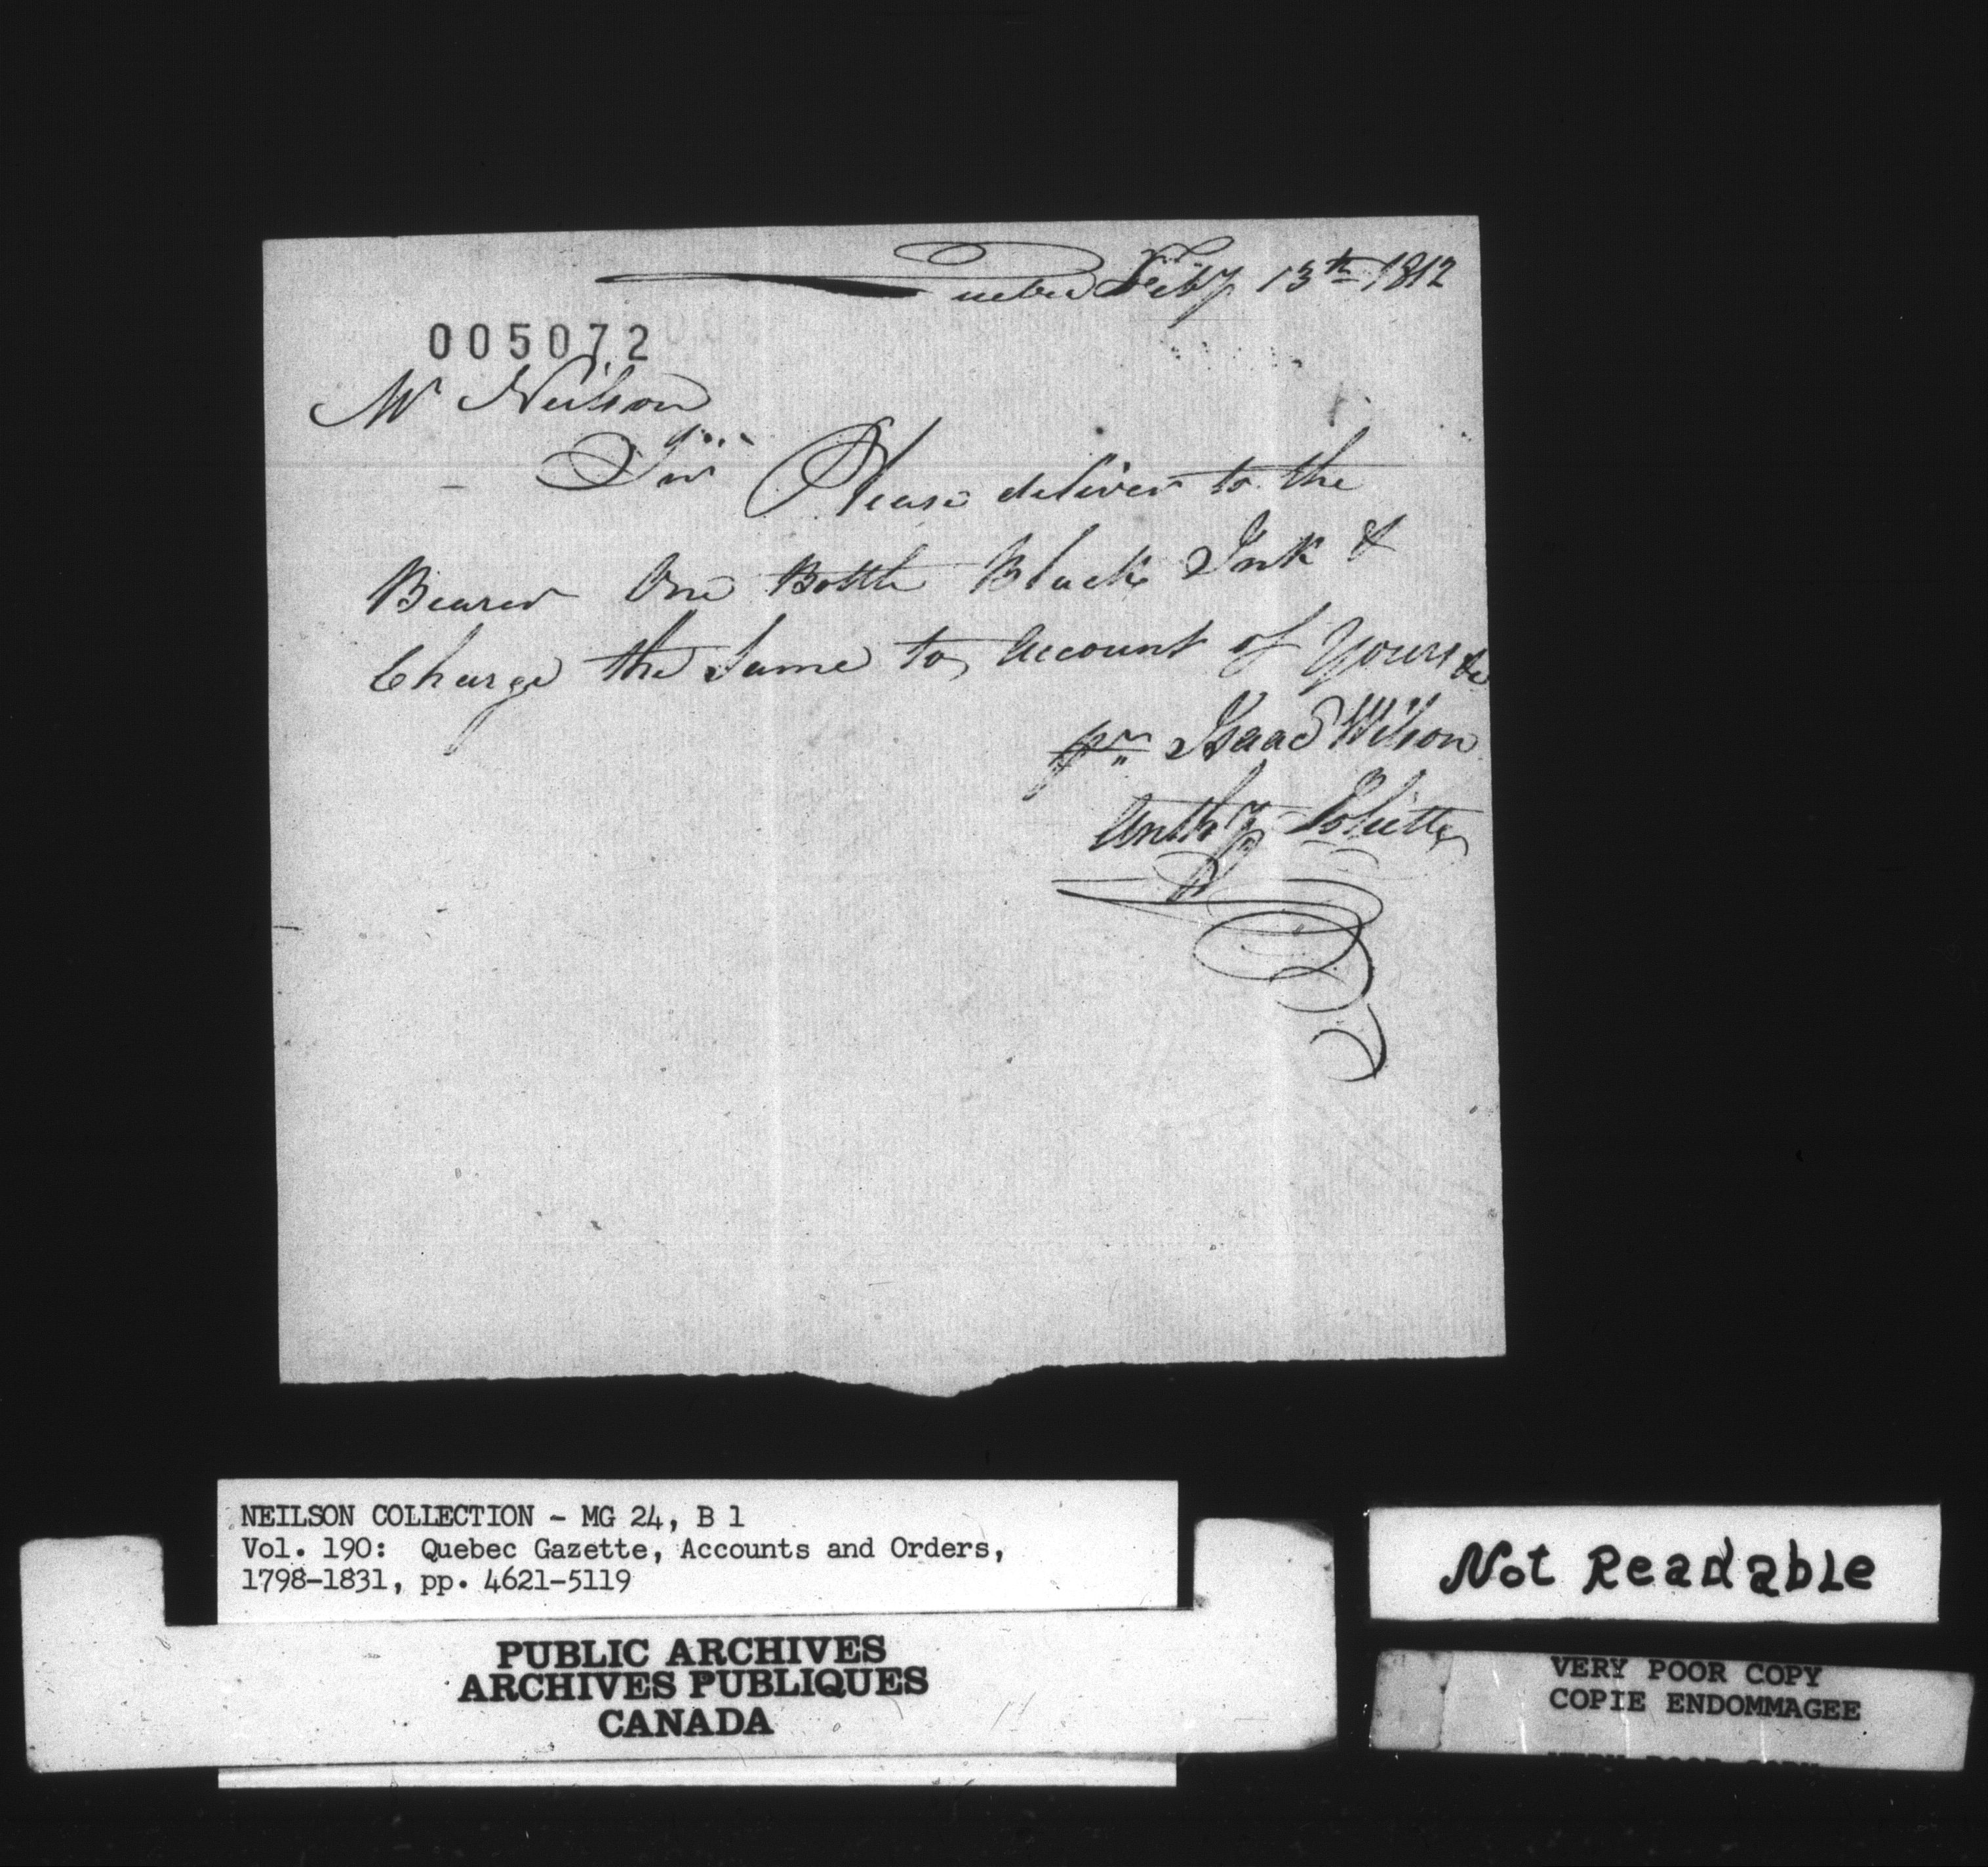 Quebec Feby 13th 1812
005072
Mr Neilson
Sir Please deliver to the
Bearer One Bottle Black Ink &
Charge the Same to account of Yours &c
pr Isaac Wilson
Anthy
NEILSON COLLECTION - MG 24, B 1
Vol. 190: Quebec Gazette, Accounts and Orders,
1798-1831, pp. 4621-5119
PUBLIC ARCHIVES
ARCHIVES PUBLIQUES
CANADA
Not Readable
VERY POOR COPY
COPIE ENDOMMAGEE